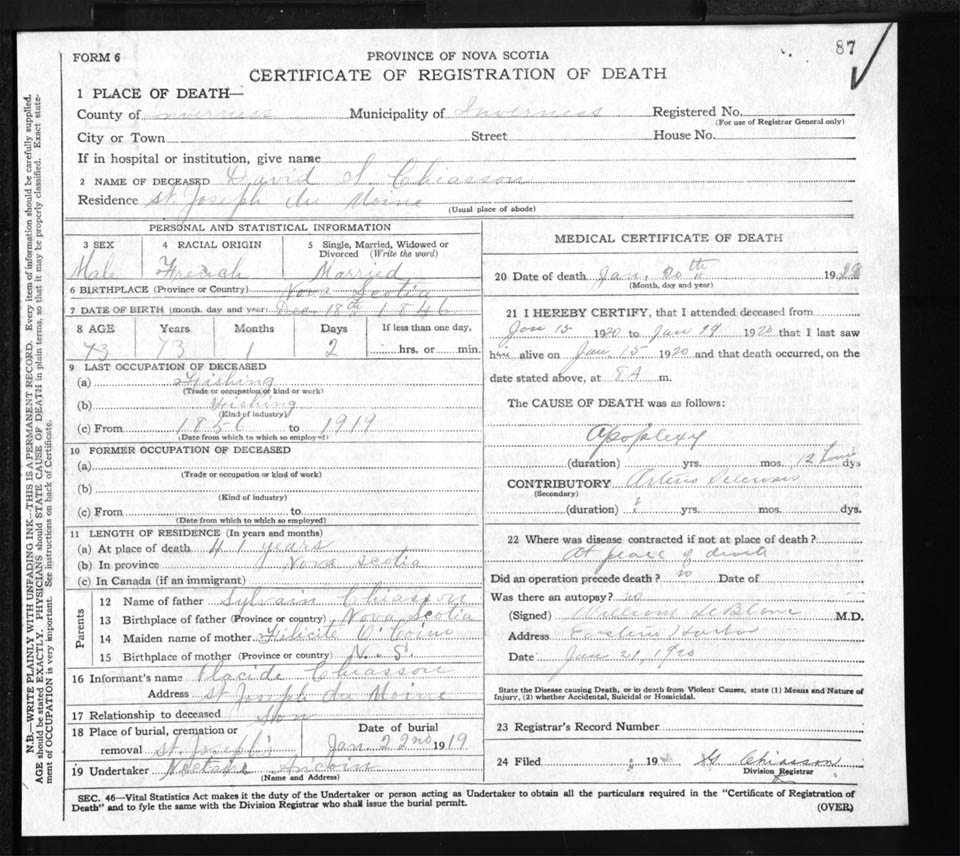 87
FORM 6
PROVINCE OF NOVA SCOTIA
CERTIFICATE OF REGISTRATION OF DEATH
1 PLACE OF DEATH—
County of Inverness Municipality of Inverness Registered No.
(For use of Registrar General only)
City or Town Street House No.
If in hospital or institution, give name
2 NAME OF DECEASED David S. Chiasson
Residence St. Joseph du Moine
(Usual place of abode)
PERSONAL AND STATISTICAL INFORMATION
3 SEX 4 RACIAL ORIGIN 5 Single, Married, Widowed or Divorced (Write the word)
Male French Married
6 BIRTHPLACE (Province or Country) Nova Scotia
7 DATE OF BIRTH (month, day and year) Dec. 18th 1846
8 AGE Years Months Days If less than one day,
73 73 1 2 hrs. or min.
9 LAST OCCUPATION OF DECEASED
(a) Fishing
(Trade or occupation or kind or work)
(b) Fishing
(Kind of industry)
(c) From 1856 to 1919
(Date from which to which so employed)
10 FORMER OCCUPATION OF DECEASED
(a)
(Trade or occupation or kind of work)
(b)
(Kind of industry)
(c) From to
(Date from which to which so employed)
11 LENGTH OF RESIDENCE (In years and months)
(a) At place of death 41 years
(b) In province Nova Scotia
(c) In Canada (if an immigrant)
Parents
12 Name of father Sylvain Chiasson
13 Birthplace of father (Province or country) Nova Scotia
14 Maiden name of mother
15 Birthplace of mother (Province or country) N. S.
16 Informant's name Placide Chiasson
Address St Joseph du Moine
17 Relationship to deceased Son
18 Place of burial, cremation or removal St. Joseph's
Date of burial
Jan 22nd 1919
19 Undertaker Aucoin
(Name and Address)
MEDICAL CERTIFICATE OF DEATH
20 Date of death Jan. 20th 1920
(Month, day and year)
21 I HEREBY CERTIFY, that I attended deceased from
Jan 15 1920 to Jan 19 1920 that I last saw
him alive on Jan 15 1920 and that death occurred, on the
date stated above, at 8 A m.
The CAUSE OF DEATH was as follows:
Apoplexy
(duration) yrs. mos. 12 hours dys
CONTRIBUTORY Arterio Sclerosis
(Secondary)
(duration) ? yrs. mos. dys.
22 Where was disease contracted if not at place of death?
At place of death
Did an operation precede death? no Date of
Was there an autopsy? no
(Signed) William LeBlanc M.D.
Address Eastern Harbor
Date Jan 21, 1920
State the Disease causing Death, or in death from Violent Causes, state (1) Means and Nature of
Injury, (2) whether Accidental, Suicidal or Homicidal.
23 Registrar's Record Number
24 Filed 19 Chiasson
Division Registrar
SEC. 46—Vital Statistics Act makes it the duty of the Undertaker or person acting as Undertaker to obtain all the particulars required in the "Certificate of Registration of
Death" and to fyle the same with the Division Registrar who shall issue the burial permit.
(OVER)
N.B.—WRITE PLAINLY WITH UNFADING INK—THIS IS A PERMANENT RECORD. Every item of information should be carefully supplied.
AGE should be stated EXACTLY. PHYSICIANS should STATE CAUSE OF DEATH in plain terms, so that it may be properly classified. Exact state-
ment of OCCUPATION is very important. See instructions on back of Certificate.